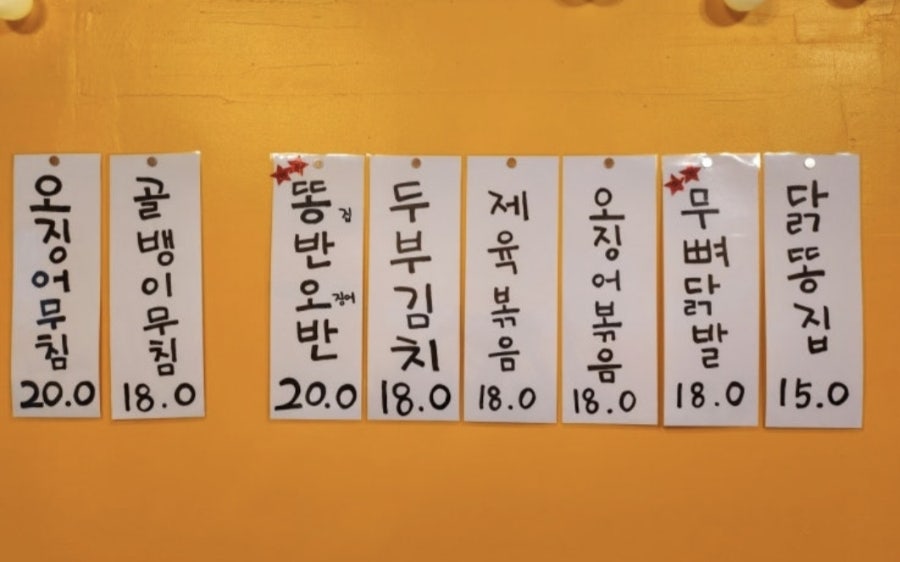 오징어무침
20.0
골뱅이무침
18.0
똥집반오징어반
20.0
두부김치
18.0
제육볶음
18.0
오징어볶음
18.0
무뼈닭발
18.0
닭똥집
15.0